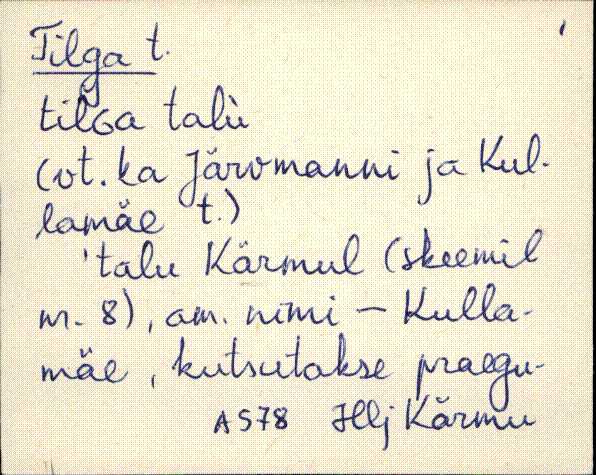 Tilga t.
tilGa talù
(vt. ka Järvmanni ja Kul-
lamäe t.)
'talu Kärmul (skeemil
nr. 8), am. nimi – Kulla-
mäe, kutsutakse praegu-
AS78 Hlj Kärmu